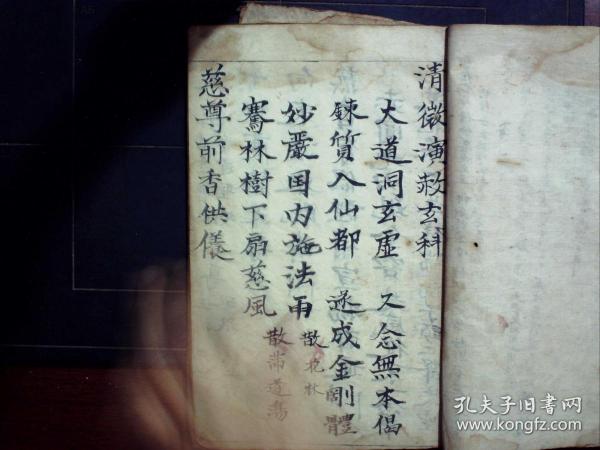 清微演赦玄科
大道洞玄虛 又念無本偈
鍊質入仙都 遂成金剛體
妙嚴国内施法雨 散花林
騫林樹下扇慈風 散滿道場
慈尊前香供儀
孔夫子旧书网
www.kongfz.com